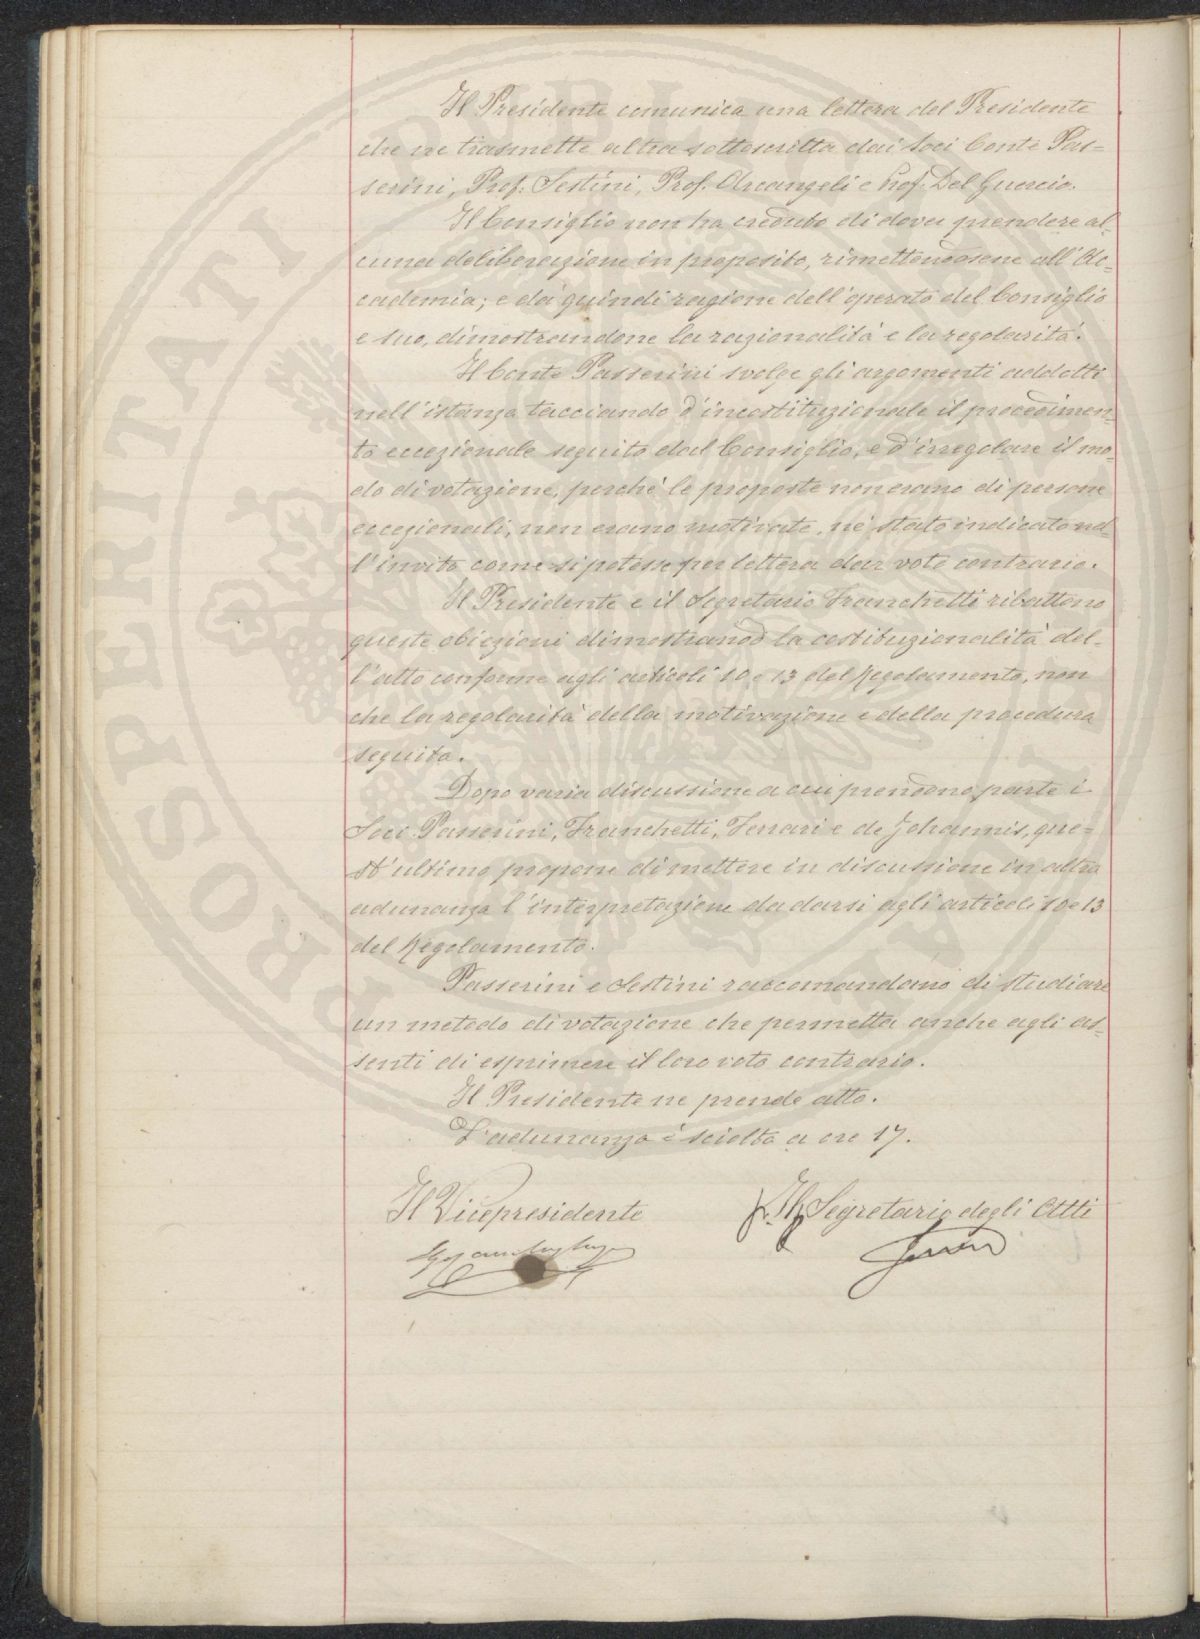 Il Presidente comunica una lettera del Presidente
che ne trasmette altra sottoscritta dai Soci Conte Pas=
serini, Prof. Sestini, Prof. Arcangeli e Prof. Del Guercio.
Il Consiglio non ha creduto di dover prendere al-
cuna deliberazione in proposito, rimettendosene all'Ac-
cademia; e dà quindi ragione dell'operato del Consiglio
e suo, dimostrandone la razionalità e la regolarità.
Il Conte Passerini svolge gli argomenti addotti
nell'istanza tacciando d'incostituzionale il procedimen-
to eccezionale seguito dal Consiglio, e d'irregolare il mo-
do di votazione, perché le proposte non erano di persone
eccezionali, non erano motivate, né stato indicato nel-
l'invito come si potesse per lettera dar voto contrario.
Il Presidente e il Segretario Franchetti ribattono
queste obiezioni dimostrando la costituzionalità del-
l'atto conforme agli articoli 10 e 13 del Regolamento, non
che la regolarità della motivazione e della procedura
seguita.
Dopo varia discussione a cui prendono parte i
Soci Passerini, Franchetti, Ferrari e de Johannis, que=
st'ultimo propone di mettere in discussione in altra
adunanza l'interpretazione da darsi agli articoli 10 e 13
del Regolamento.
Passerini e Sestini raccomandano di studiare
un metodo di votazione che permetta anche agli as-
senti di esprimere il loro voto contrario.
Il Presidente ne prende atto.
L'adunanza è sciolta a ore 17.
Il Vicepresidente
Il Segretario degli Atti
PROSPERITATI PUBLICAE